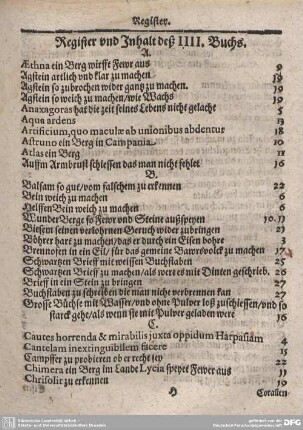 Register.
Register vnd Inhalt deß IIII. Buchs.
A.
Æthna ein Berg wirfft Fewr aus 9
Agstein artlich vnd klar zu machen 18
Agstein so zubrochen wider gantz zu machen. 19
Agstein so weich zu machen/wie Wachs 19
Anaxagoras hat die zeit seines Lebens nicht gelacht 5
Aqua ardens 13
Artificium, quo maculæ ab unionibus abdentur 18
Astruno ein Berg in Campania. 10
Atlas ein Berg 11
Außm Armbrust schiessen das man nicht fehlet 16
B.
Balsam so gut/vom falschem zu erkennen 22
Bein weich zu machen 6
Helffen Bein weich zu machen 6
Wunder Berge so Fewr vnd Steine außspeyen 10. 11
Biesem seinen verlohrnen Geruch wider zubringen 21
Böhrer hart zu machen/das er durch ein Eisen bohre 3
Brennofen in ein Eil/ für das gemeine Bawrsvolck zu machen 17
Schwartzen Brieff mit weissen Buchstaben 25
Schwartzen Brieff zu machen/als wer es mit Dinten geschrieb. 26
Brieff in ein Stein zu bringen 27
Buchstaben zu schreiben die man nicht verbrennen kan 27
Grosse Büchse mit Wasser/vnd ohne Pulver loß zuschiessen/vnd so
starck gehe/als wenn sie mit Pulver geladen were 16
C.
Cautes horrenda & mirabilis juxta oppidum Harpasum 4
Cautelam inextinguibilem facere 15
Campffer zu probieren ob er recht sey 22
Chimera ein Berg im Lande Lycia speyet Fewer aus 11
Chrisolit zu erkennen 19
H
Corallen